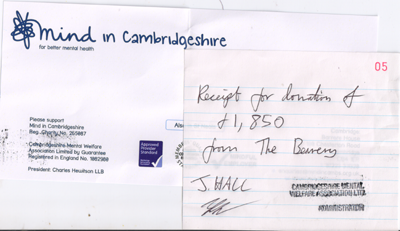 mind in Cambridgeshire
for better mental health
Please support
Mind in Cambridgeshire
Reg. Charity No. 265087
Cambridgeshire Mental Welfare
Association Limited by Guarantee
Registered in England No. 1082980
President: Charles Hewitson LLB
Approved
Provider
Standard
05
Receipt for donation of
£1,850
from The Bowery
J. HALL
CAMBRIDGESHIRE MENTAL
WELFARE ASSOCIATION LTD.
ADMINISTRATION